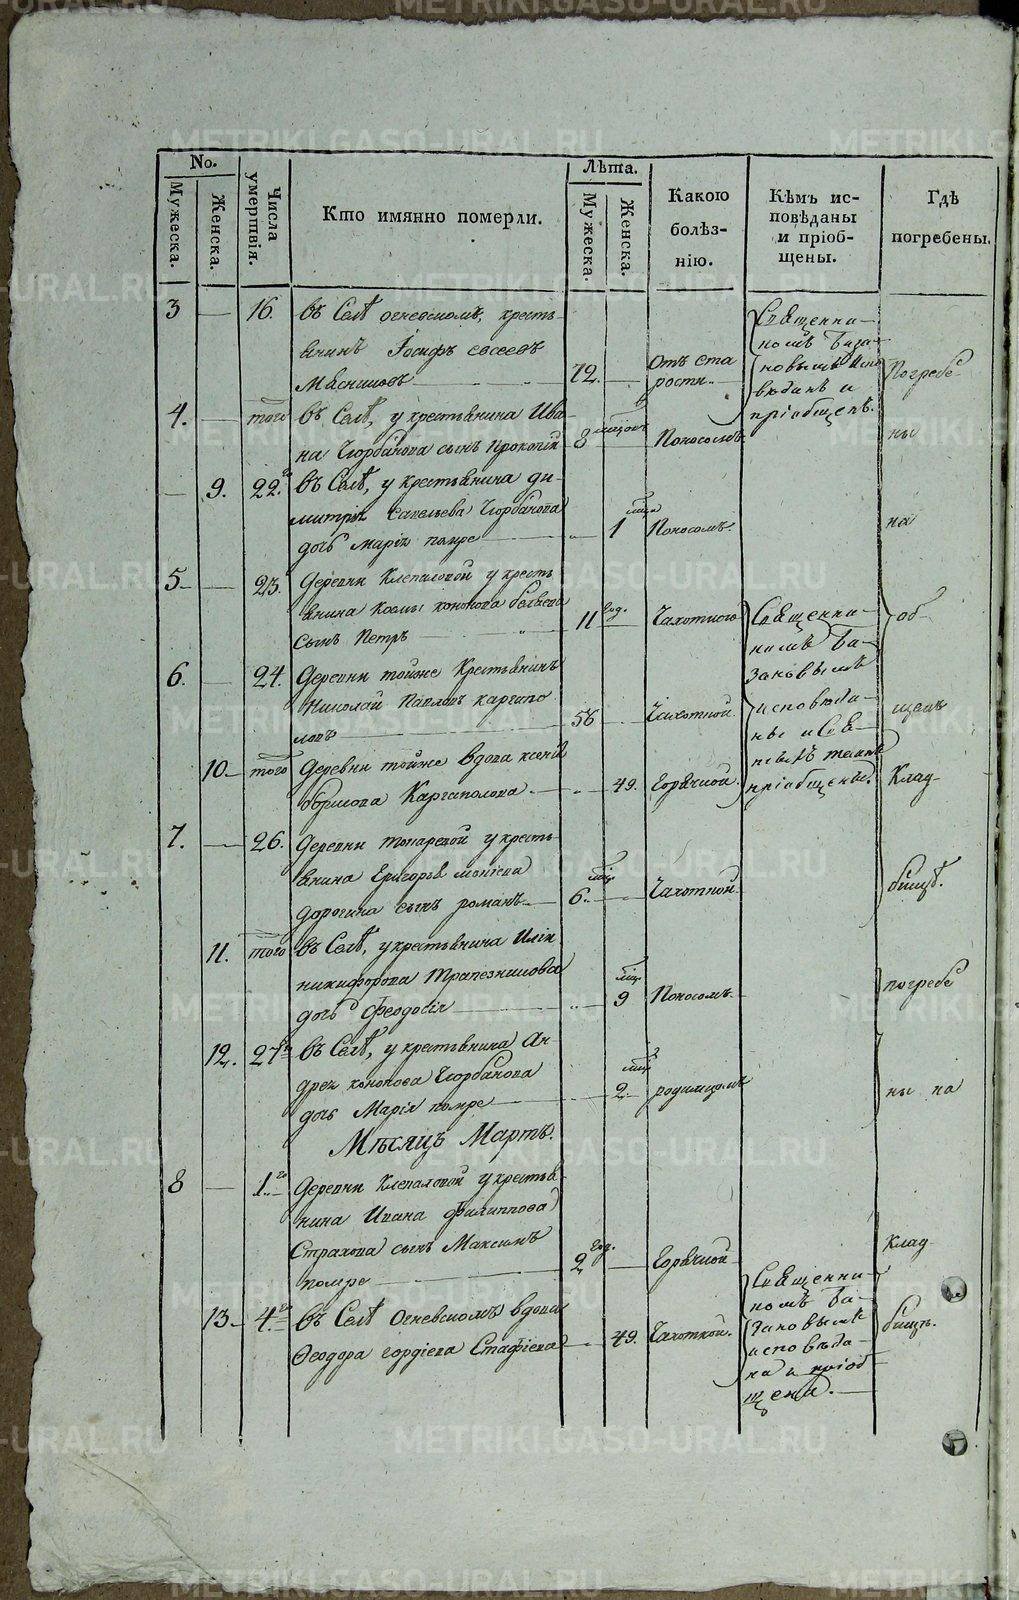 No.
Мужеска.
Женска.
Числа умертвія.
Кто имянно померли.
Лѣта.
Мужеска.
Женска.
Какою болѣз-
нію.
Кѣмъ ис-
повѣданы
и пріоб-
щены.
Гдѣ
погребены.
3 16. Въ Селѣ огневскомъ, кресть-
янинъ Іосифъ евсеевъ
Мясниковъ 72. Отъ ста
рости.
Священни-
комъ База-
новымъ испо
вѣданъ и
пріобщенъ.
Погребе-
4. того Въ Селѣ, у крестьянина Ива
на Горбунова сынъ Прокопій 8 Поносомъ.
ны
9. 22. Въ Селѣ, у крестьянина ди-
митрія Савельева Горбунова
дочь марія помре 1 Поносомъ.
на
5. 23. Деревни Клепаловой у кресть
янина Козмы кононова
сынъ Петръ 11 год. Чахоткого
6. 24. Деревни тойже Крестьянинъ
Николай Павловъ каргапо
ловъ 58 Чахоткой
10. того Деревни тойже вдова
Каргаполова 49. Горячкой.
Священни-
комъ Ба-
зановымъ
исповѣда-
ны и Свя-
тыхъ таинъ
пріобщены.
об-
щемъ
Клад-
7. 26. Деревни токаревой у кресть
янина Григорья
дорогина сынъ романъ 6. Чахоткой
бищѣ.
11. того Въ Селѣ, у крестьянина Иліи
никифорова Трапезникова
дочь Феодосія 9 Поносомъ.
погребе
12. 27 Въ Селѣ, у крестьянина Ан
дрея кононова Горбунова
дочь Марія помре 2. родимцомъ
ны на
Мѣсяцъ Мартъ.
8 1. Деревни Клепаловой у крестья
нина Ивана филиппова
Страхова сынъ Максимъ
помре 2 год. Горячкой
клад-
13. 4. Въ Селѣ Огневскомъ вдова
Феодора гордіева 49. Чахоткой.
Священни-
комъ Ба-
зановымъ
исповѣда-
на и пріоб-
щена.
бищѣ.
METRIKI.GASO-URAL.RU